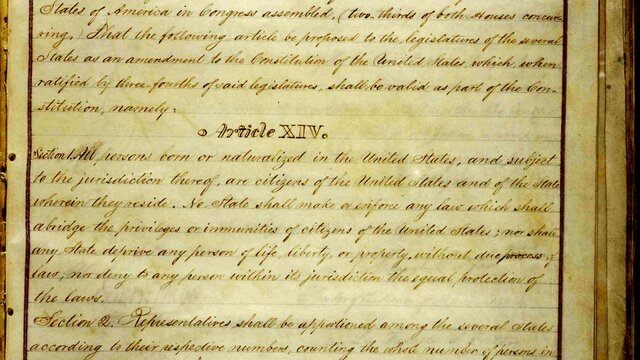 States of America in Congress assembled, (two-thirds of both Houses concur-
ring,) That the following article be proposed to the legislatures of the several
States as an amendment to the Constitution of the United States, which, when
ratified by three-fourths of said legislatures, shall be valid as part of the Con-
stitution, namely:
Article XIV.
Section 1. All persons born or naturalized in the United States, and subject
to the jurisdiction thereof, are citizens of the United States and of the State
wherein they reside. No State shall make or enforce any law which shall
abridge the privileges or immunities of citizens of the United States; nor shall
any State deprive any person of life, liberty, or property, without due process of
law, nor deny to any person within its jurisdiction the equal protection of
the laws.
Section 2. Representatives shall be apportioned among the several States
according to their respective numbers, counting the whole number of persons in